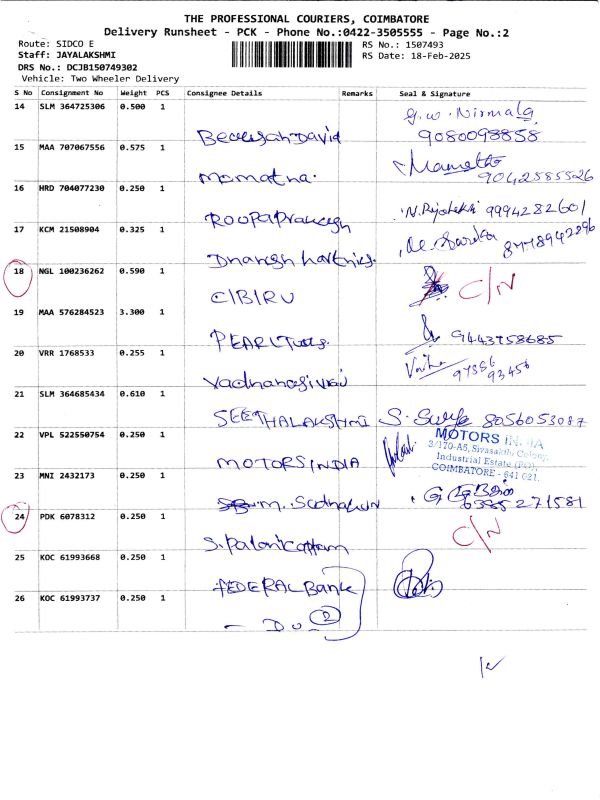 THE PROFESSIONAL COURIERS, COIMBATORE
Delivery Runsheet - PCK - Phone No.:0422-3505555 - Page No.:2
Route: SIDCO E
RS No.: 1507493
Staff: JAYALAKSHMI
RS Date: 18-Feb-2025
DRS No.: DCJB150749302
Vehicle: Two Wheeler Delivery
S No Consignment No Weight PCS Consignee Details Remarks Seal & Signature
14 SLM 364725306 0.500 1
G.W. Nirmala
David 9080098858
15 MAA 707067556 0.575 1
Mamatha
Mamatha. 9042585526
16 HRD 704077230 0.250 1
9994282601
Roopa Prakash
17 KCM 21508904 0.325 1
8778942296
Dhanesh
18 NGL 100236262 0.590 1
C/B/RU C/N
19 MAA 576284523 3.300 1
PEARL 9443758685
20 VRR 1768533 0.255 1
97356
93456
21 SLM 364685434 0.610 1
SEETHALAKSHMI S. Surya 8056053087
22 VPL 522550754 0.250 1
MOTORS INDIA
3/170-A5, Sivasakthi Colony,
Industrial Estate (PO),
COIMBATORE - 641 021.
MOTORS INDIA
23 MNI 2432173 0.250 1
M. 6385271581
24 PDK 6078312 0.250 1
C/N
S.
25 KOC 61993668 0.250 1
FEDERAL Bank
26 KOC 61993737 0.250 1
- Do - 2